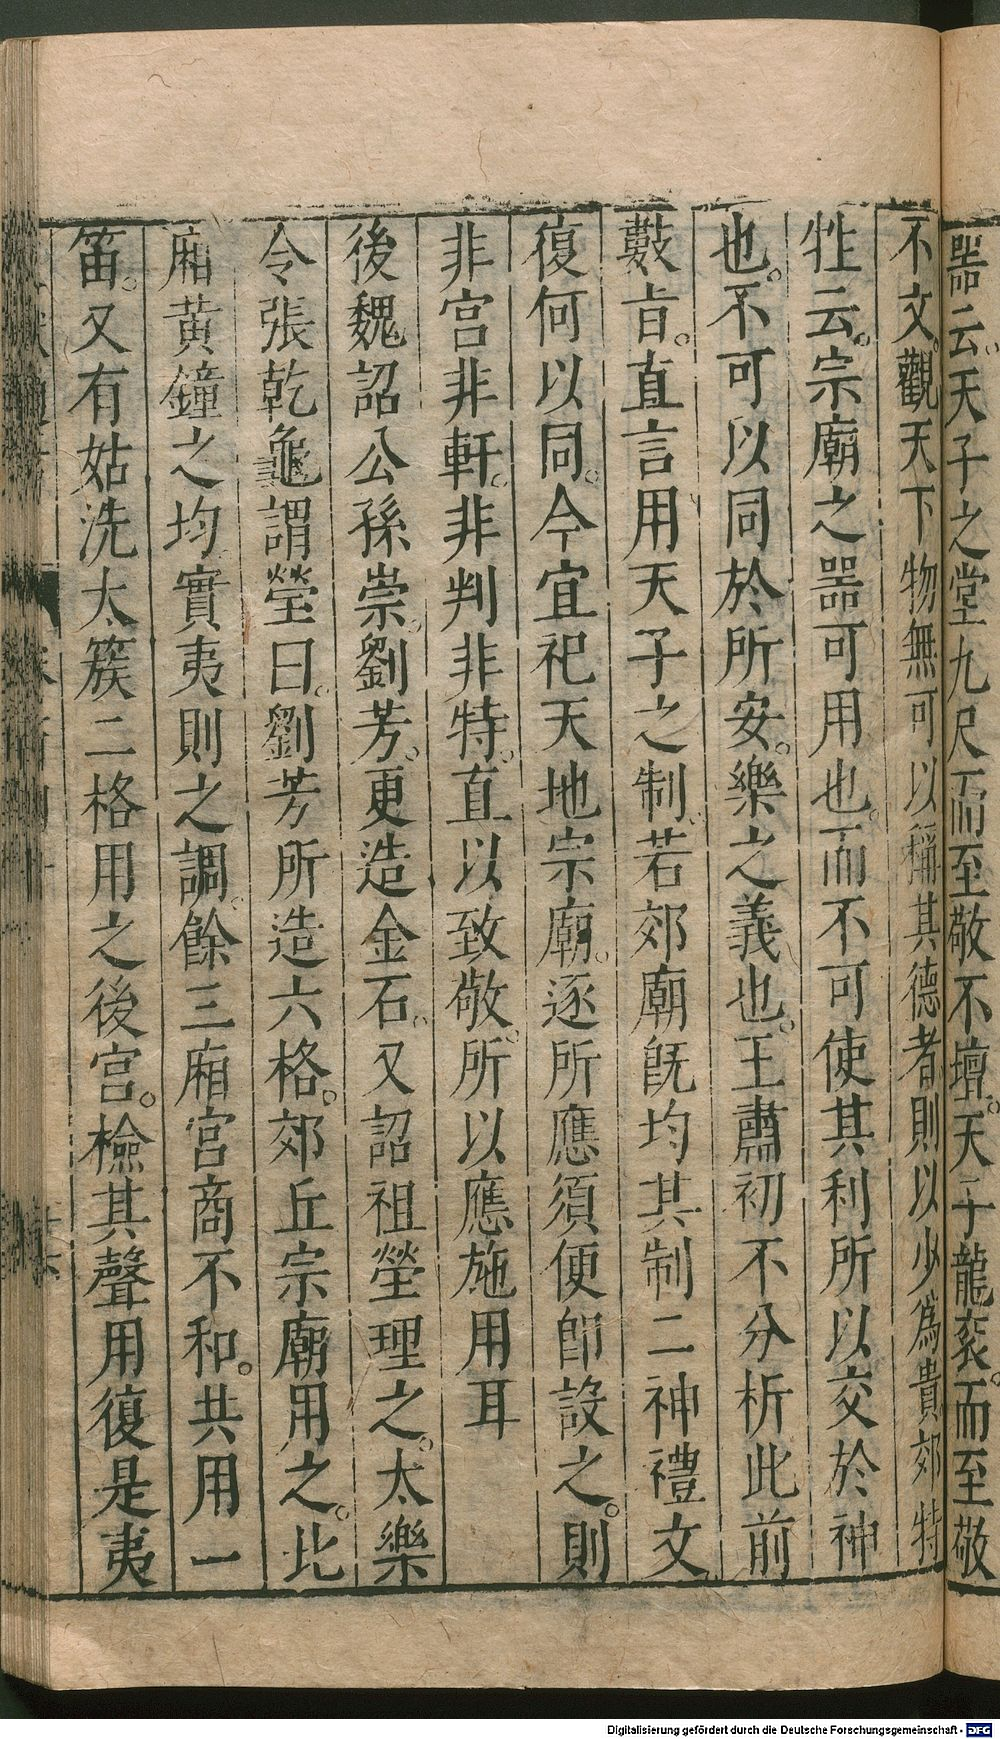 噐云天子之堂九尺而至敬不壇天子龍衮而至敬
不文觀天下物無可以稱其德者則以少爲貴郊特
牲云宗廟之噐可用也而不可使其利所以交於神
也不可以同於所安樂之義也王肅初不分析此前
數㫖直言用天子之制若郊廟旣均其制二神禮文
復何以同今宜祀天地宗廟逐所應須便卽設之則
非宮非軒非判非特直以致敬所以應施用耳
後魏詔公孫崇劉芳更造金石又詔祖瑩理之太樂
令張乾龜謂瑩曰劉芳所造六格郊丘宗廟用之北
廂黃鐘之均實夷則之調餘三廂宮商不和共用一
笛又有姑洗太簇二格用之後宮檢其聲用復是夷
Digitalisierung gefördert durch die Deutsche Forschungsgemeinschaft - DFG